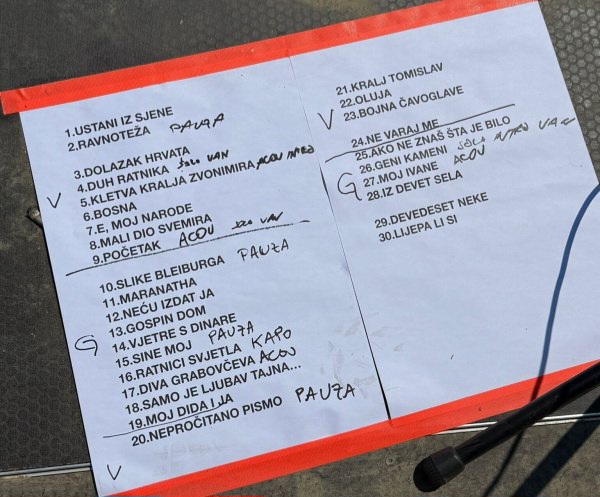 1.USTANI IZ SJENE
2.RAVNOTEŽA PAUZA
3.DOLAZAK HRVATA
4.DUH RATNIKA SOLO VAN
V
5.KLETVA KRALJA ZVONIMIRA ACOU INTRO
6.BOSNA
7.E, MOJ NARODE
8.MALI DIO SVEMIRA
9.POČETAK ACOU SOLO VAN
10.SLIKE BLEIBURGA PAUZA
11.MARANATHA
12.NEĆU IZDAT JA
13.GOSPIN DOM
G
14.VJETRE S DINARE
15.SINE MOJ PAUZA
16.RATNICI SVJETLA KAPO
17.DIVA GRABOVČEVA ACOU
18.SAMO JE LJUBAV TAJNA...
19.MOJ DIDA I JA
20.NEPROČITANO PISMO PAUZA
V
21.KRALJ TOMISLAV
22.OLUJA
V
23.BOJNA ČAVOGLAVE
24.NE VARAJ ME
25.AKO NE ZNAŠ ŠTA JE BILO
26.GENI KAMENI SOLO INTRO VAN
G
27.MOJ IVANE ACOU
28.IZ DEVET SELA
29.DEVEDESET NEKE
30.LIJEPA LI SI